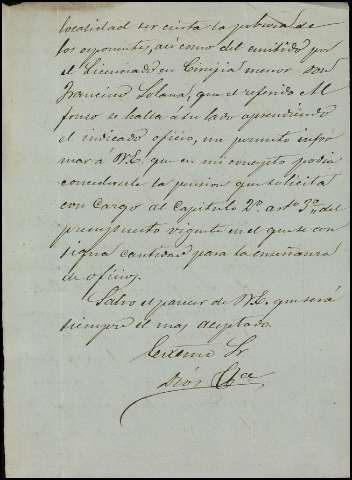 localidad ser cierta la pobreza de
los esponentes, asi como del emitido por
el Licenciado en Cirujia menor Don
Francisco Solana, que el referido Al
fonso se halla a su lado aprendiendo
el indicado oficio, me permito infor
mar á V.E. que en mi concepto podia
concederse la pension que solicita
con cargo al Capitulo 2º. artº 3º del
presupuesto vigente en el que se con
signa cantidad para la enseñanza
de oficios.
Salvo el parecer de V.E. que será
siempre el mas aceptado.
Excmo Sr